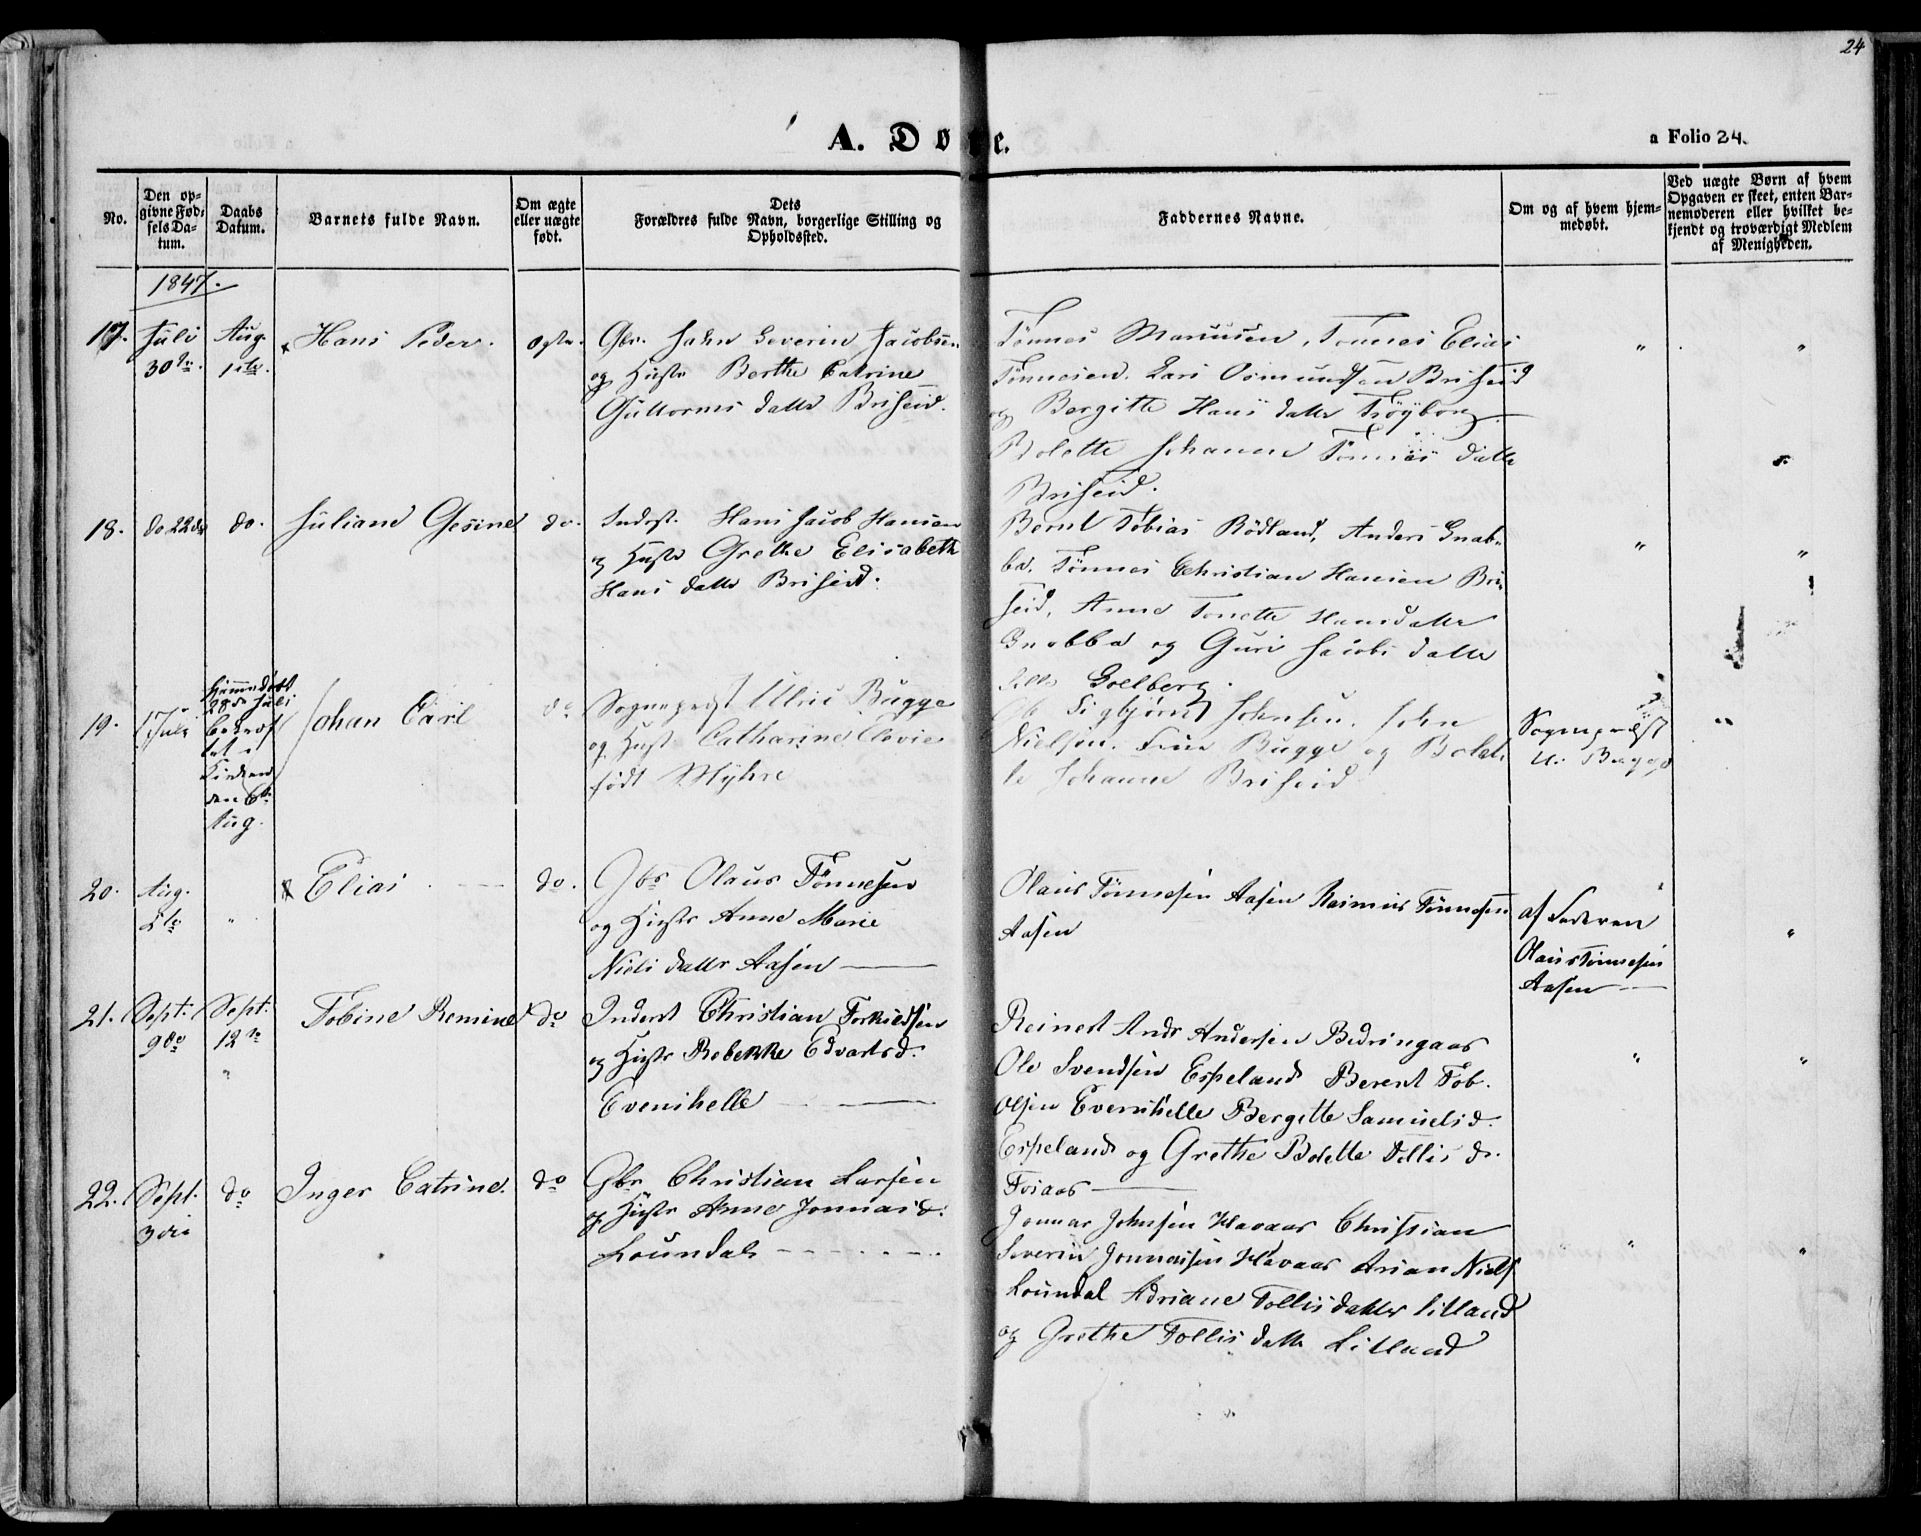 24
A. Døbte.
a Folio 24.
No.
Den op-
givne Fød-
sels Da-
tum.
Daabs
Datum.
Barnets fulde Navn.
Om ægte
eller uægte
født.
Dets
Forældres fulde Navn, borgerlige Stilling og
Opholdssted.
Faddernes Navne.
Om og af hvem hjem-
medøbt.
Ved uægte Børn af hvem
Opgaven er skeet, enten Bar-
nemoderen eller hvilket be-
kjendt og troværdigt Medlem
af Menigheden.
1847.
17.
Juli
30te.
Aug.
1ste.
Hans Peder.
ægte.
Gbr. John Severin Jacobsen
og Hustr Berthe Catrine
Guttorms datter Briseid.
Tönnes Mariusen, Tönnes Elias
Tönnesen. Lars Osmundsen Briseid
og Bergitte Hans datter Fröyborg
Bolette Johanne Tönnes datter
Briseid.
"
"
18.
do 22de
do.
Juliane Gesine
do.
Inderst. Hans Jacob Hansen
og Hustr Grethe Elisabeth
Hans datter Briseid.
Bernt Tobias Rödland, Anders Snab-
ba. Tönnes Christian Hansen Bri-
seid, Anne Tonette Hansdatter
Snabba og Guri Jacobs datter
Golberg.
"
"
19.
Juli
Hjemmedøbt
28de Juli
bekræf
tet i
Kirken
den 6te
Aug.
Johan Carl
do
Sogneprest Ulric Bugge
og Hust Catharine Clovie
født Myhre
Sigbjörn Johnsen. John
Nielsen. Frue Bugge og Bolet-
te Johanne Briseid
Sogneprest
U. Bugge
"
20.
Aug.
"
Elias
do.
Gbr Olaus Tönnesen
og Hustr Anne Marie
Niels datter Aasen
Olaus Tönnesen Aasen Rasmus Tönnesen
Aasen
af Faderen
Olaus Tönnesen
Aasen
"
21.
Sept.
9de
Sept.
12te
"
Tobine Remine
do
Inderst Christian Torkildsen
og Hustr Rebekke Edvartsd.
Evenshelle
Reinert Andr Andersen Bedringaas
Ole Svendsen Espeland Berent Tob.
Olsen Evenshelle Bergitte Samuelsd.
Espeland og Grethe Bolette Tellisd.
Foiaas
"
"
22.
Sept.
3die
do
Inger Catrine.
do
Gbr. Christian Larsen
og Hustr Anne Jonnasd.
Loundal
Jonnas Johnsen Havaas Christian
Severin Jonnassen Havaas Arian Niels
Loundal Adriane Tollisdatter Litland
og Grethe Tollis datte Litland
"
"